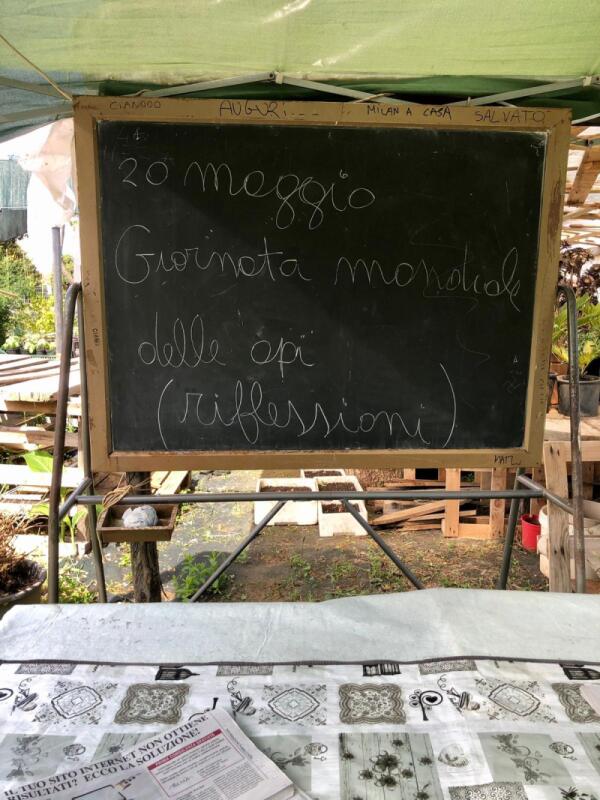 CIANOOO AUGURI... MILAN A CASA SALVATO
20 maggio
Giornata mondiale
delle api
(riflessioni)
IL TUO SITO INTERNET NON OTTIENE
RISULTATI? ECCO LA SOLUZIONE!